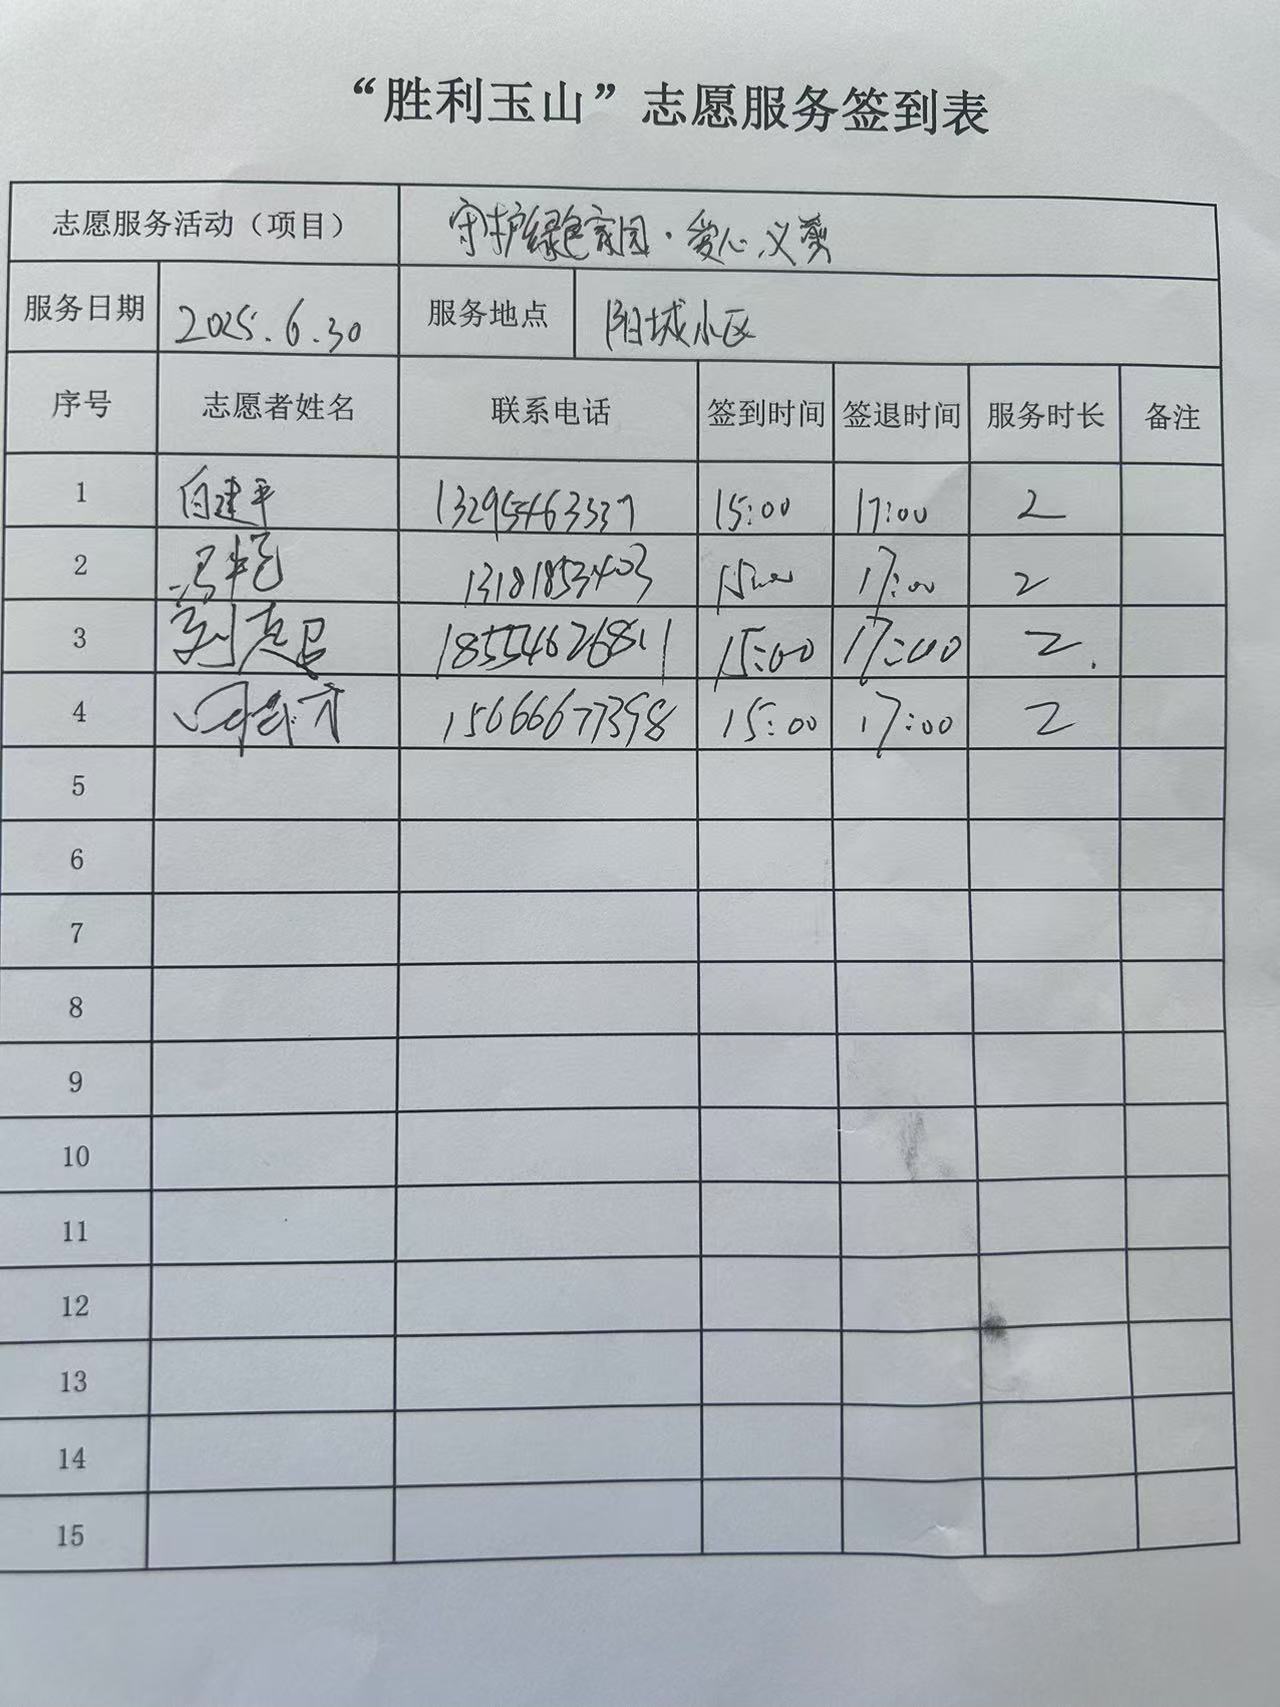 “胜利玉山”志愿服务签到表
志愿服务活动（项目） 守护绿色家园·爱心义剪
服务日期 2025.6.30 服务地点 阳城小区
序号 志愿者姓名 联系电话 签到时间 签退时间 服务时长 备注
1 白建平 13295463337 15:00 17:00 2
2 13181853403 15:00 17:00 2
3 18554626811 15:00 17:00 2
4 15666677398 15:00 17:00 2
5
6
7
8
9
10
11
12
13
14
15